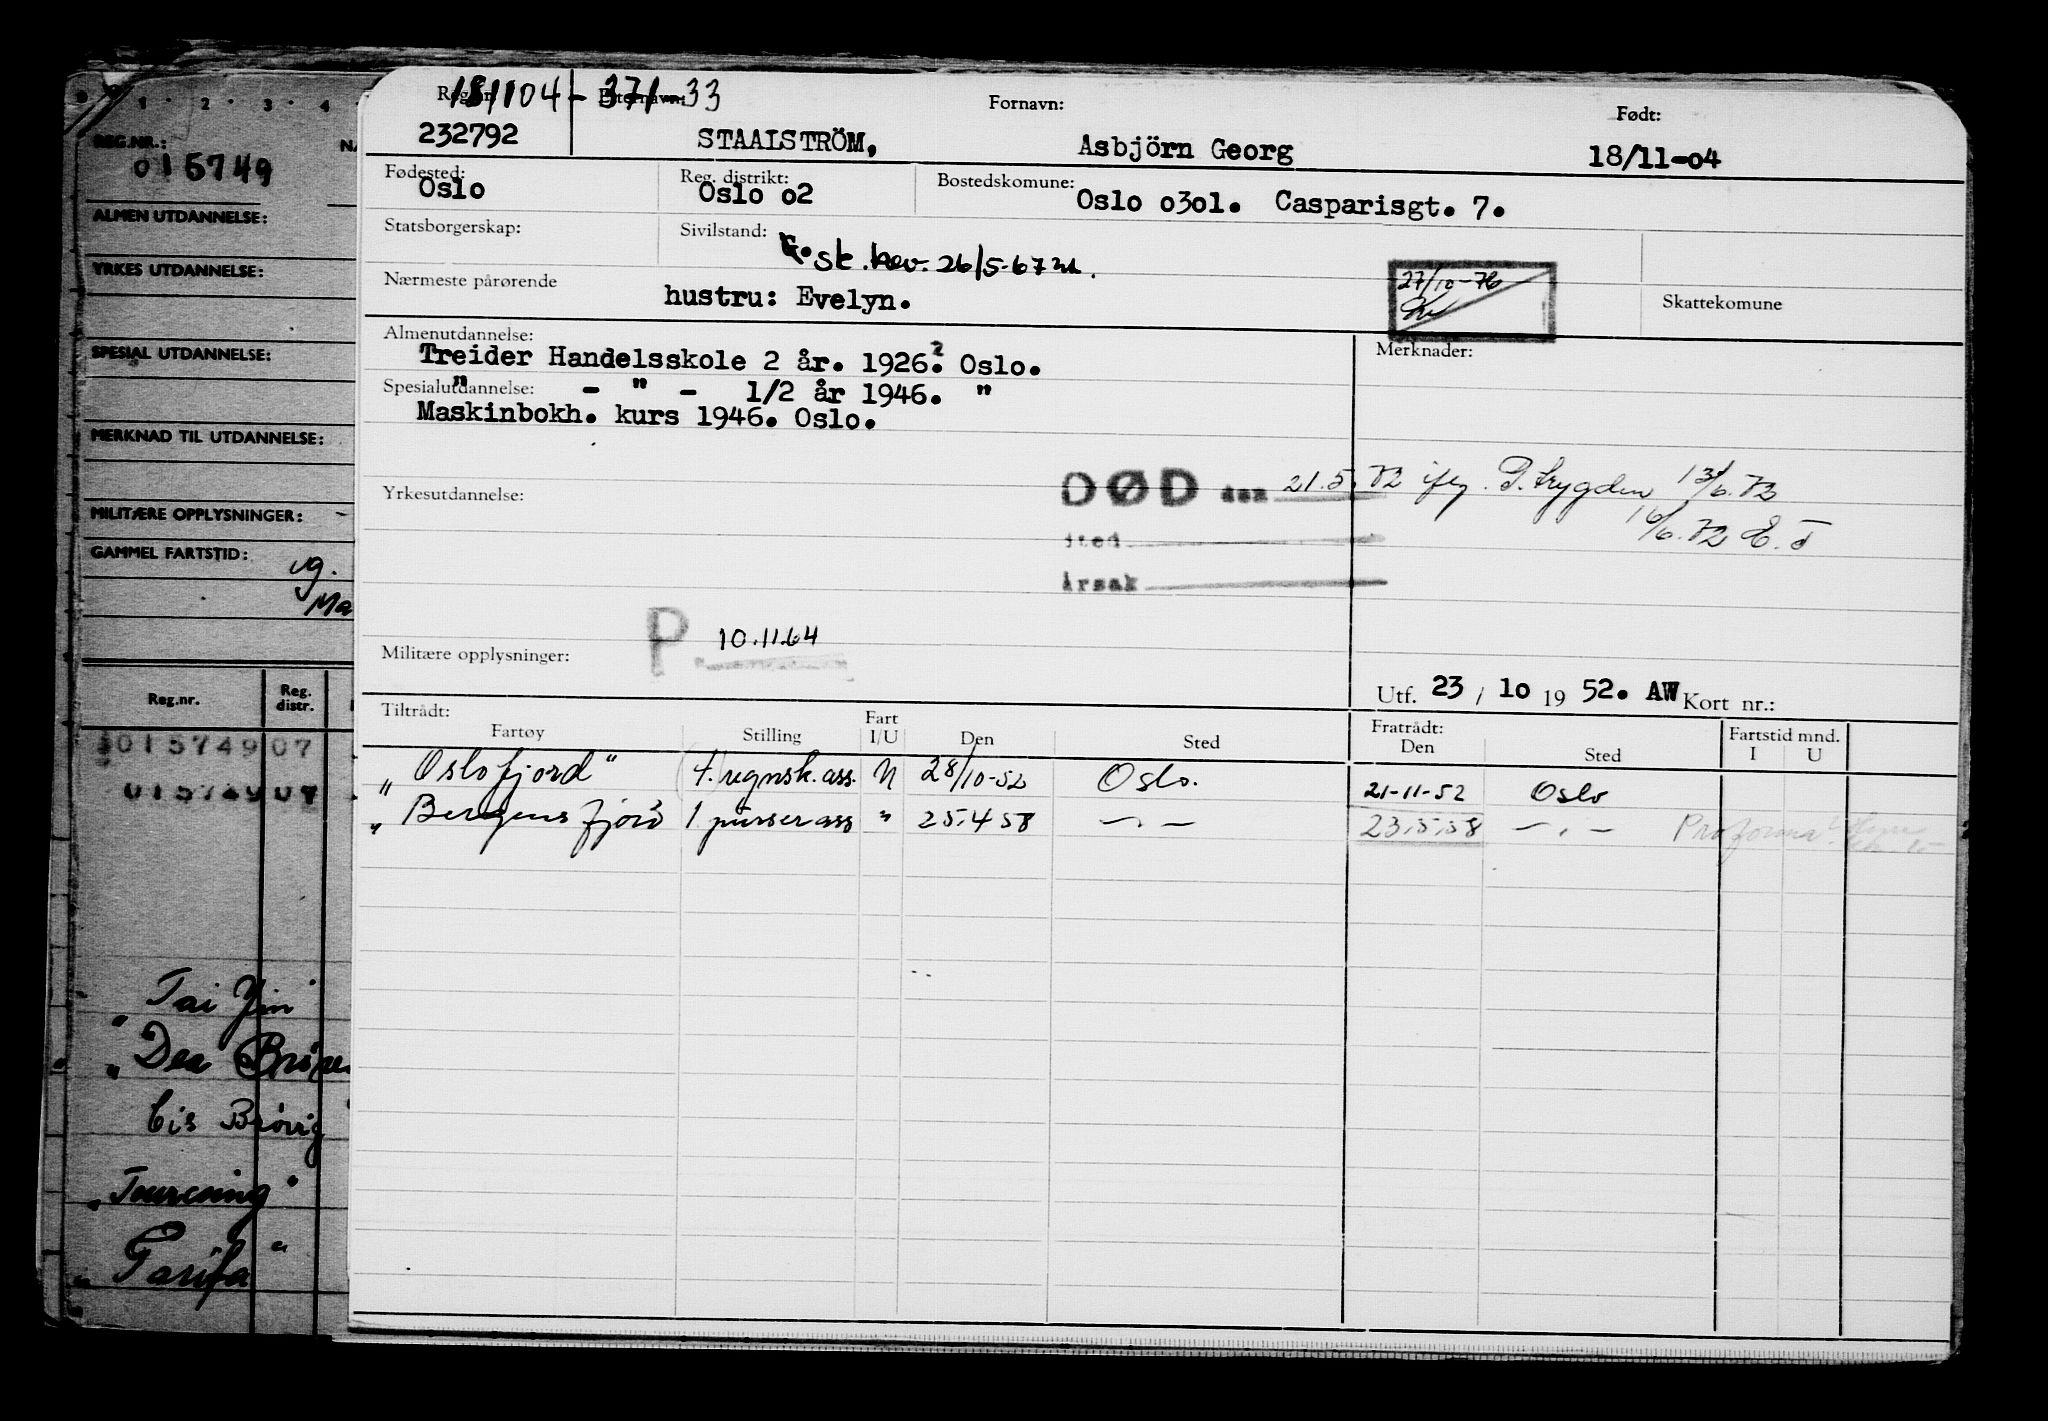 181104 - 371-33
Reg.nr. Etternavn: Fornavn: Født:
232792 STAALSTRÖM, Asbjörn Georg 18/11-o4
Fødested: Reg. distrikt: Bostedskomune:
Oslo Oslo o2 Oslo o3o1. Casparisgt. 7.
Statsborgerskap: Sivilstand:
sk. bev. 26/5-67
Nærmeste pårørende
hustru: Evelyn.
27/10-76
Skattekomune
Almenutdannelse: Merknader:
Treider Handelsskole 2 år. 1926.? Oslo.
Spesialutdannelse: " - " - 1/2 år 1946. "
Maskinbokh. kurs 1946. Oslo.
Yrkesutdannelse:
DØD den 21.5.72 P. trygden 13/6.72
16/6.72 E.T
sted
årsak
P 10.11.64
Militære opplysninger:
Utf. 23 / 1o 19 52. AW Kort nr.:
Tiltrådt: Fratrådt: Fartstid mnd.
Fartøy Stilling Fart I/U Den Sted Den Sted I U
„Oslofjord" 4. regnsk. ass. U 28/10-52 Oslo. 21-11-52 Oslo
„Bergensfjord 1 purser ass " 25.4 58 — . — 23.5.58 — . — Proforma
1 · 2 · 3 · 4
REG.NR.:
015749
ALMEN UTDANNELSE:
YRKES UTDANNELSE:
SPESIAL UTDANNELSE:
MERKNAD TIL UTDANNELSE:
MILITÆRE OPPLYSNINGER: -
GAMMEL FARTSTID:
Ma
Reg.nr. Reg. distr.
015749 07
015749 07
„Tai Yin"
„Dea
Cis Brøvig
„Tourcoing"
„Tarifa"